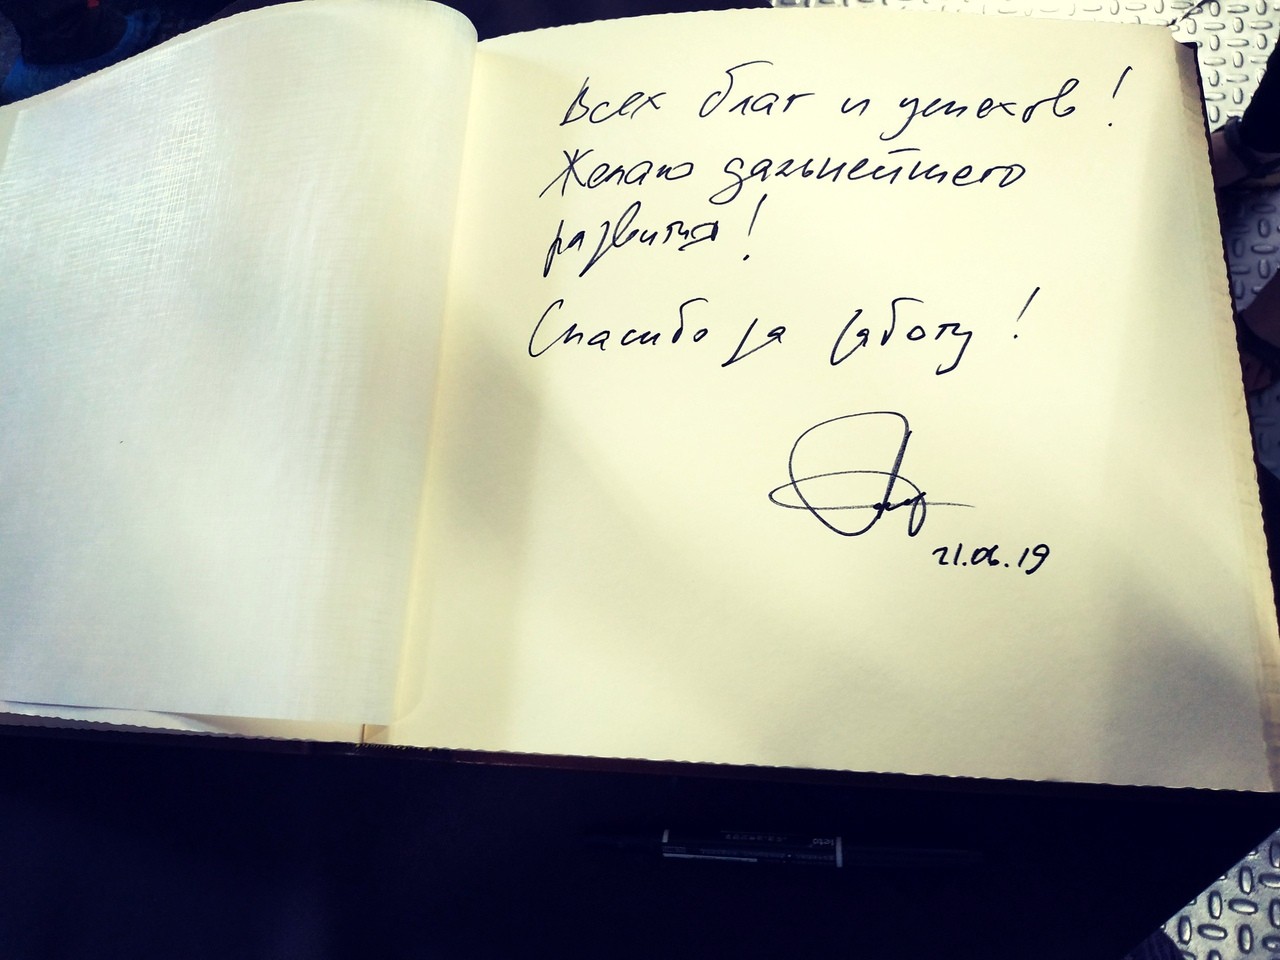 Всех благ и успехов!
Желаю дальнейшего
развития!
Спасибо за работу!
21.06.19